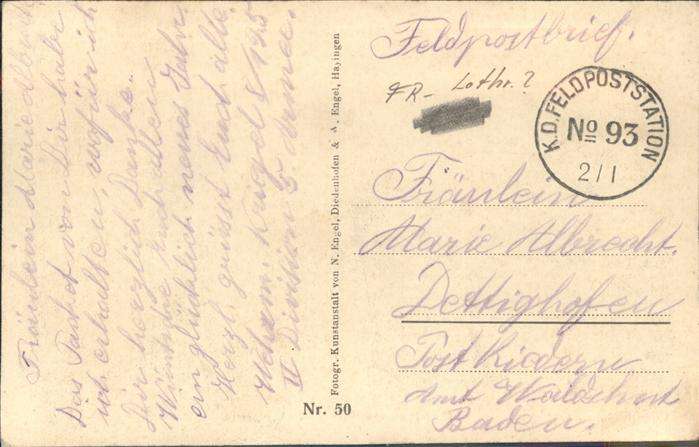 Fräulein Marie Albrecht
Das Packet von Dir habe
ich erhalten, wofür ich
Dir herzlich Danke.
Wünsche Euch allen
ein glücklich neues Jahr,
Herzl. grüsst Euch alle
Wehrm. Kriegel 8/125
II Division
Fotogr. Kunstanstalt von N. Engel, Diedenhofen & A. Engel, Hayingen
Nr. 50
Feldpostbrief.
FR- Lothr.?
K.D. FELDPOSTSTATION
No 93
2/1
Fräulein
Marie Albrecht.
Dettighofen
Post
Amt Waldshut
Baden.